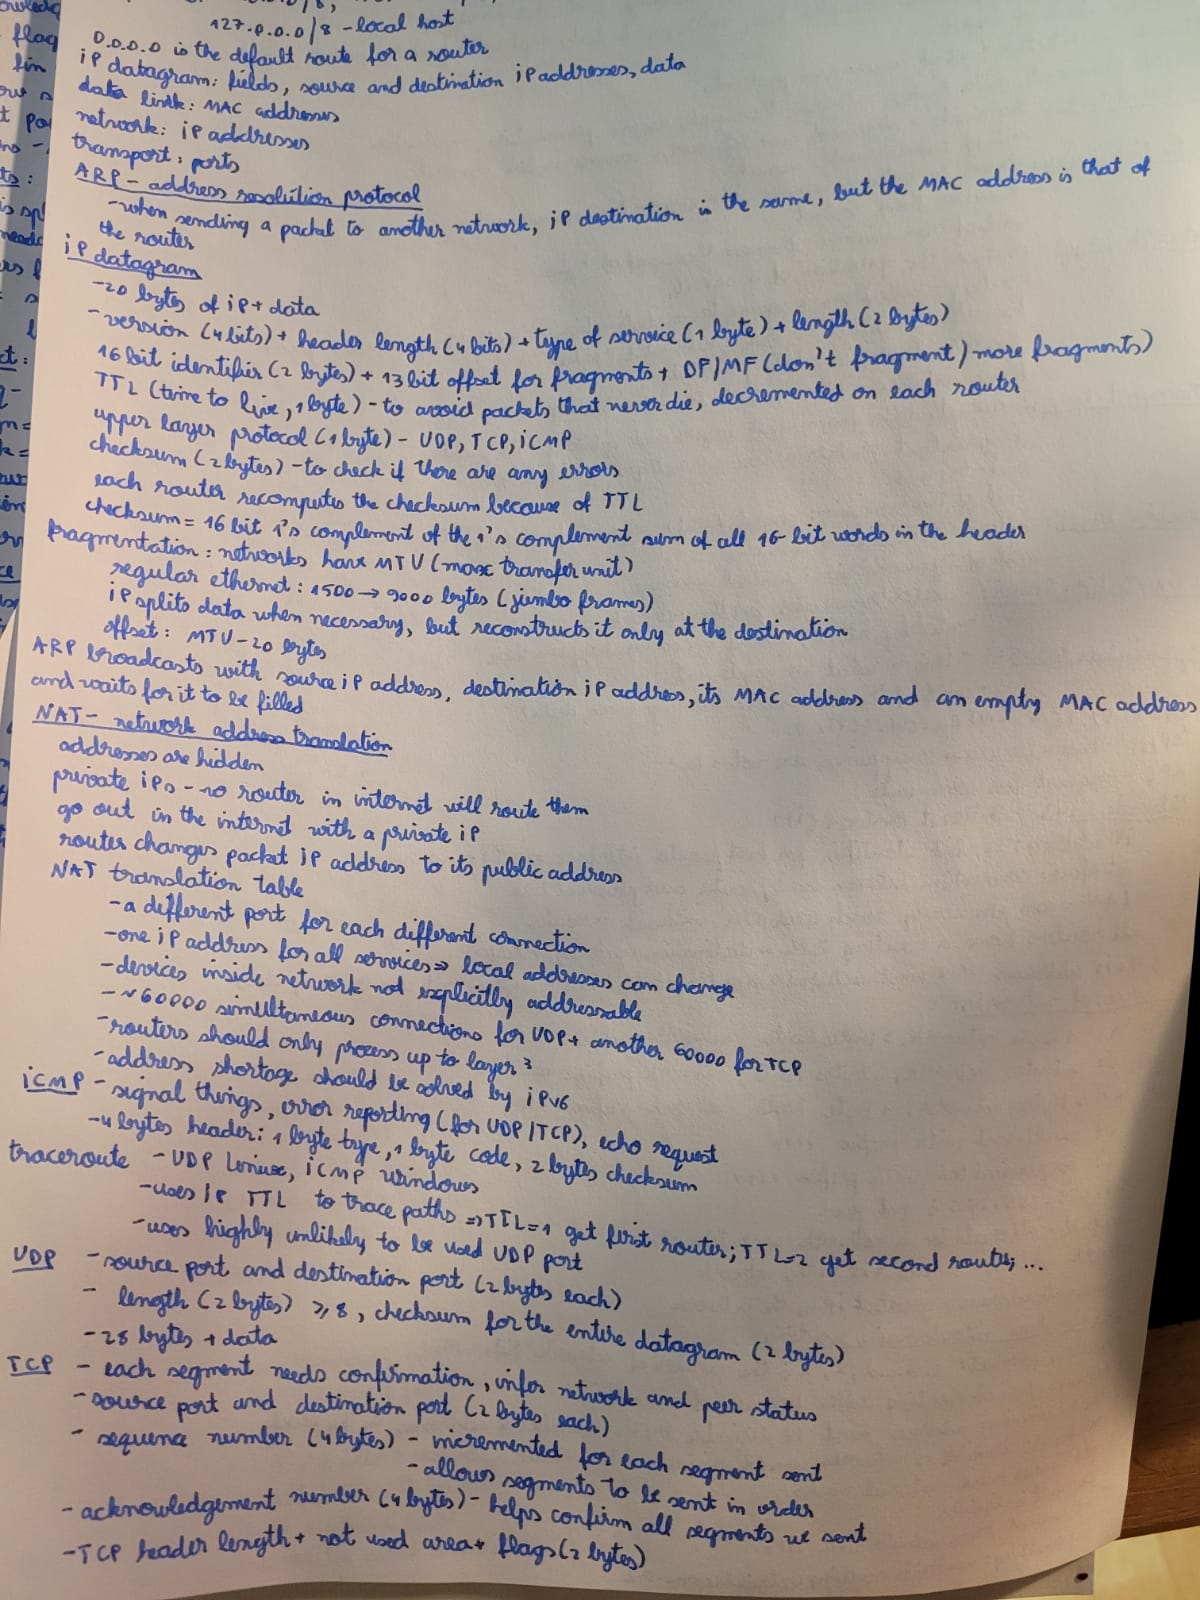 127.0.0.0/8 - local host
0.0.0.0 is the default route for a router
iP datagram: fields, source and destination iP addresses, data
data link: MAC addresses
network: iP addresses
transport: ports
ARP - address resolution protocol
- when sending a packet to another network, iP destination is the same, but the MAC address is that of
the router
iP datagram
- 20 bytes of iP + data
- version (4 bits) + header length (4 bits) + type of service (1 byte) + length (2 bytes)
16 bit identifier (2 bytes) + 13 bit offset for fragments + DF/MF (don't fragment / more fragments)
TTL (time to live, 1 byte) - to avoid packets that never die, decremented on each router
upper layer protocol (1 byte) - UDP, TCP, iCMP
checksum (2 bytes) - to check if there are any errors
each router recomputes the checksum because of TTL
checksum = 16 bit 1's complement of the 1's complement sum of all 16-bit words in the header
fragmentation: networks have MTU (max transfer unit)
regular ethernet: 1500 → 9000 bytes (jumbo frames)
iP splits data when necessary, but reconstructs it only at the destination
offset: MTU - 20 bytes
ARP broadcasts with source iP address, destination iP address, its MAC address and an empty MAC address
and waits for it to be filled
NAT - network address translation
addresses are hidden
private iPs - no router in internet will route them
go out in the internet with a private iP
router changes packet iP address to its public address
NAT translation table
- a different port for each different connection
- one iP address for all services ⇒ local addresses can change
- devices inside network not explicitly addressable
- ~60000 simultaneous connections for UDP + another 60000 for TCP
- routers should only process up to layer 3
- address shortage should be solved by iPv6
iCMP - signal things, error reporting (for UDP/TCP), echo request
- 4 bytes header: 1 byte type, 1 byte code, 2 bytes checksum
traceroute - UDP Linux, iCMP windows
- uses iP TTL to trace paths ⇒ TTL=1 get first router; TTL=2 get second router; ...
- uses highly unlikely to be used UDP port
UDP - source port and destination port (2 bytes each)
- length (2 bytes) ≥ 8, checksum for the entire datagram (2 bytes)
- 28 bytes + data
TCP - each segment needs confirmation, infer network and peer status
- source port and destination port (2 bytes each)
- sequence number (4 bytes) - incremented for each segment sent
- allows segments to be sent in order
- acknowledgement number (4 bytes) - helps confirm all segments we sent
- TCP header length + not used area + flags (2 bytes)